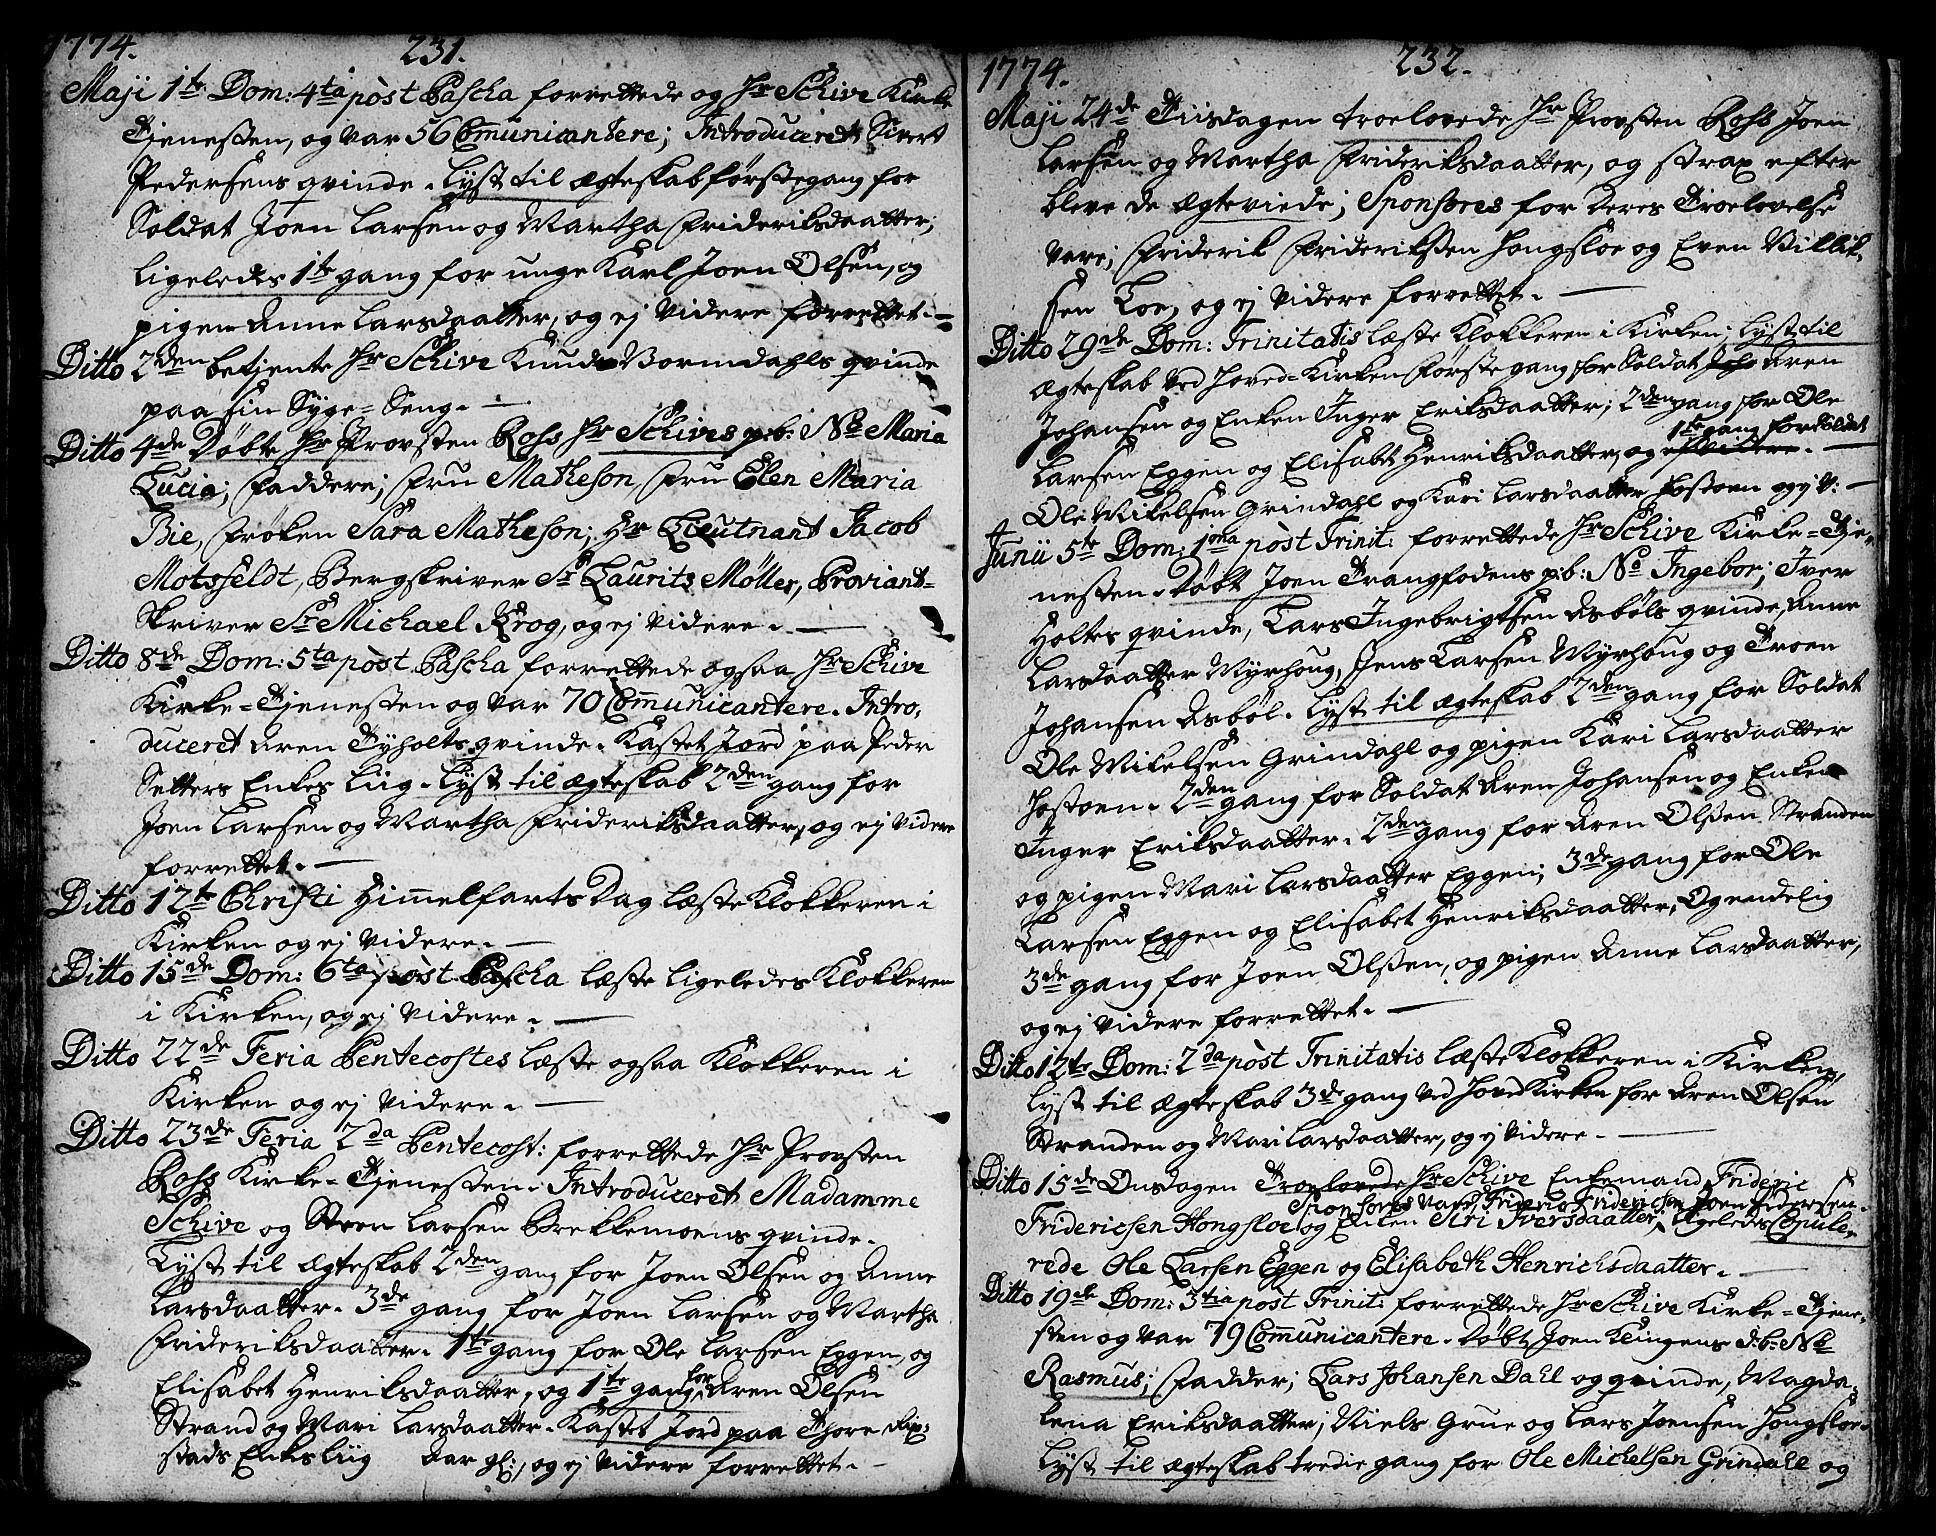 1774. 231.
Maji 1te Dom: 4ta pòst Pascha forrettede og Hr Schive Kirke
Tjenesten, og var 56 Com̄unicantere; Introduceret Sivert
Pedersens qvinde. Lyst til Ægteskab første gang for
Soldat Joen Larsen og Martha Frideriksdaatter;
Ligeledes 1te gang for unge Karl Joen Olsen, og
pigen Anne Larsdaatter, og ej videre forrettet. —
Ditto 2den betjente Hr Schive Knud Bormdahls qvinde
paa sin Syge-Seng. —
Ditto 4de Døbte Hr Provsten Rohs Hr Schives p:b: No Maria
Lucia; Faddere; Fru Matheson, Fru Elen Maria
Bie, Frøken Sara Matheson; Hr Lieutnant Jacob
Motsfeldt, Bergskriver Sr Laurits Møller, Proviant-
Skriver Sr Michael Krog, og ej videre. —
Ditto 8de Dom: 5ta pòst Pascha forrettede ogsaa Hr Schive
Kirke-Tjenesten og var 70 Com̄unicantere. Intro-
duceret Aren Tyholts qvinde. Kastet Jord paa Peder
Setters Enkes Liig. Lyst til Ægteskab 2den gang for
Joen Larsen og Martha Frideriksdaatter, og ej videre
forrettet. —
Ditto 12te Christi Him̄elfarts Dag læste Klokkeren i
Kirken og ej videre. —
Ditto 15de Dom: 6ta pòst Pascha læste ligeledes Klokkeren
i Kirken, og ej videre. —
Ditto 22de Feria Pentecostes læste ogsaa Klokkeren i
Kirken og ej videre. —
Ditto 23de Feria 2da Pentecost: forrettede Hr Provsten
Rohs Kirke-Tjenesten. Introduceret Madamme
Schive og Steen Larsen Brekkemoens qvinde.
Lyst til Ægteskab 2den gang for Joen Olsen og Anne
Larsdaatter. 3de gang for Joen Larsen og Martha
Frideriksdaatter. 1te gang for Ole Larsen Eggen, og
Elisabet Henriksdaatter, og 1te gang for Aren Olsen
Strand og Mari Larsdaatter. Kastet Jord paa Thore
stads Enkes Liig Aar gl:, og ej videre forrettet. —
1774. 232.
Maji 24de Tiisdagen troelovede Hr Provsten Rohs Joen
Larsen og Martha Frideriksdaatter, og strax efter
bleve de Ægteviede; Sponsores for deres Troelovelse
vare; Friderik Frideriksen Hongsloe og Even Billik-
sen Loe, og ej videre forrettet. —
Ditto 29de Dom: Trinitatis læste Klokkeren i Kirken; Lyst til
Ægteskab ved Hoved-Kirken første gang for Soldat Aren
Johansen og Enken Inger Eriksdaatter; 2den gang for Ole
Larsen Eggen og Elisabet Henriksdaatter, og ej videre. 1te gang for Soldat
Ole Mikelsen Grindahl og Kari Larsdaatter Hostoen og ej v: —
Junii 5te Dom: 1ma pòst Trinit: forrettede Hr Schive Kirke-Tje-
nesten. Døbt Joen Trangfodens p:b: No Ingebor; Iver
Holtes qvinde, Lars Ingebrigtsen Asbøls qvinde, Anne
Larsdaatter Myrhoug, Jens Larsen Myrhoug og Troen
Johansen Asbøl. Lyst til Ægteskab 2den gang for Soldat
Ole Mikelsen Grindahl og pigen Kari Larsdaatter
Hostoen. 2den gang for Soldat Aren Johansen og Enken
Inger Eriksdaatter. 2den gang for Aren Olsen Stranden
og pigen Mari Larsdaatter Eggen; 3de gang for Ole
Larsen Eggen og Elisabet Henriksdaatter, Og endelig
3de gang for Joen Olsen, og pigen Anne Larsdaatter,
og ej videre forrettet. —
Ditto 12te Dom: 2da pòst Trinitatis læste Klokkeren i Kirken,
Lyst til Ægteskab 3de gang ved Hoved Kirken for Aren Olsen
Stranden og Mari Larsdaatter, og ej videre. —
Ditto 15de Onsdagen Troelovede Hr Schive Enkemand Frideric
Sponsores vare, Frideric Fridericsen Joen Siversen.
Fridericsen Hongsloe og Enken Siri Iversdaatter, Ligeledes Copule-
rede Ole Larsen Eggen og Elisabeth Henrichsdaatter. —
Ditto 19de Dom: 3tia pòst Trinit: forrettede Hr Schive Kirke-Tjene-
sten og var 79 Com̄unicantere. Døbt Joen Klingens d:b: No
Rasmus; Fadder; Lars Johansen Dahl og qvinde, Magda-
lena Eriksdaatter; Niels Grue og Lars Joensen Hongsloe
Lyst til Ægteskab tredie gang for Ole Michelsen Grindahl og